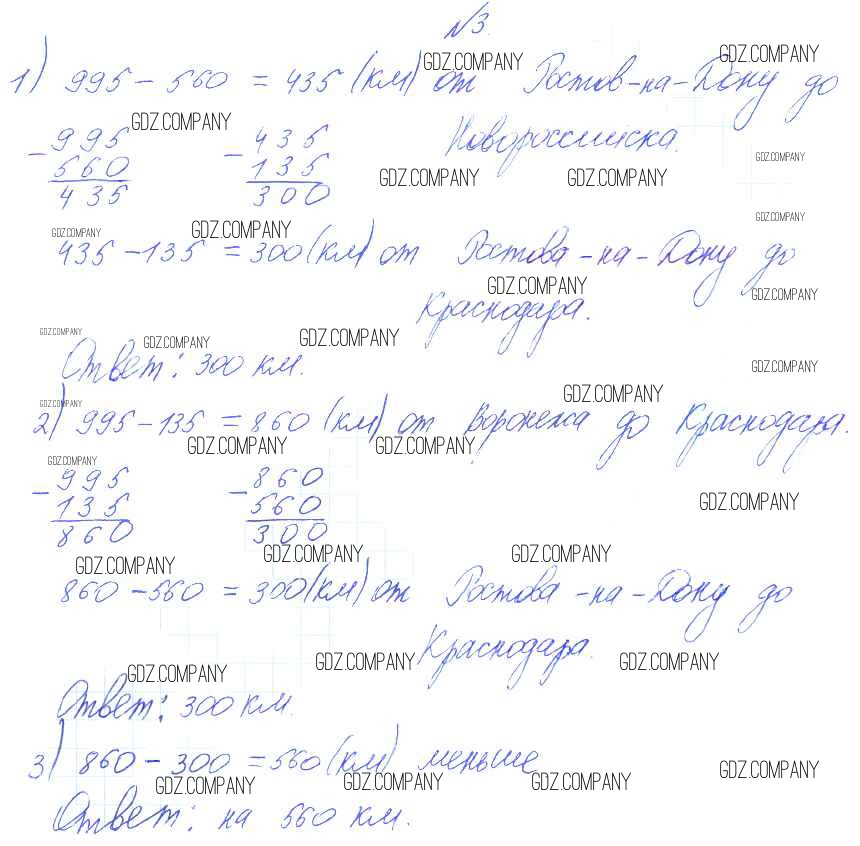 №3.
GDZ.COMPANY GDZ.COMPANY
1) 995 - 560 = 435 (км) от Ростов-на-Дону до
GDZ.COMPANY
- 995 - 435 Новороссийска.
560 135 GDZ.COMPANY
435 300 GDZ.COMPANY GDZ.COMPANY
GDZ.COMPANY GDZ.COMPANY GDZ.COMPANY
435 - 135 = 300 (км) от Ростова-на-Дону до
GDZ.COMPANY GDZ.COMPANY
Краснодара.
GDZ.COMPANY GDZ.COMPANY GDZ.COMPANY
Ответ: 300 км. GDZ.COMPANY
GDZ.COMPANY GDZ.COMPANY
2) 995 - 135 = 860 (км) от Воронежа до Краснодара.
GDZ.COMPANY GDZ.COMPANY
GDZ.COMPANY
- 995 - 860
135 560 GDZ.COMPANY
860 300
GDZ.COMPANY GDZ.COMPANY GDZ.COMPANY
860 - 560 = 300 (км) от Ростова-на-Дону до
Краснодара.
GDZ.COMPANY GDZ.COMPANY GDZ.COMPANY
Ответ: 300 км.
3) 860 - 300 = 560 (км) меньше
GDZ.COMPANY GDZ.COMPANY GDZ.COMPANY GDZ.COMPANY
Ответ: на 560 км.